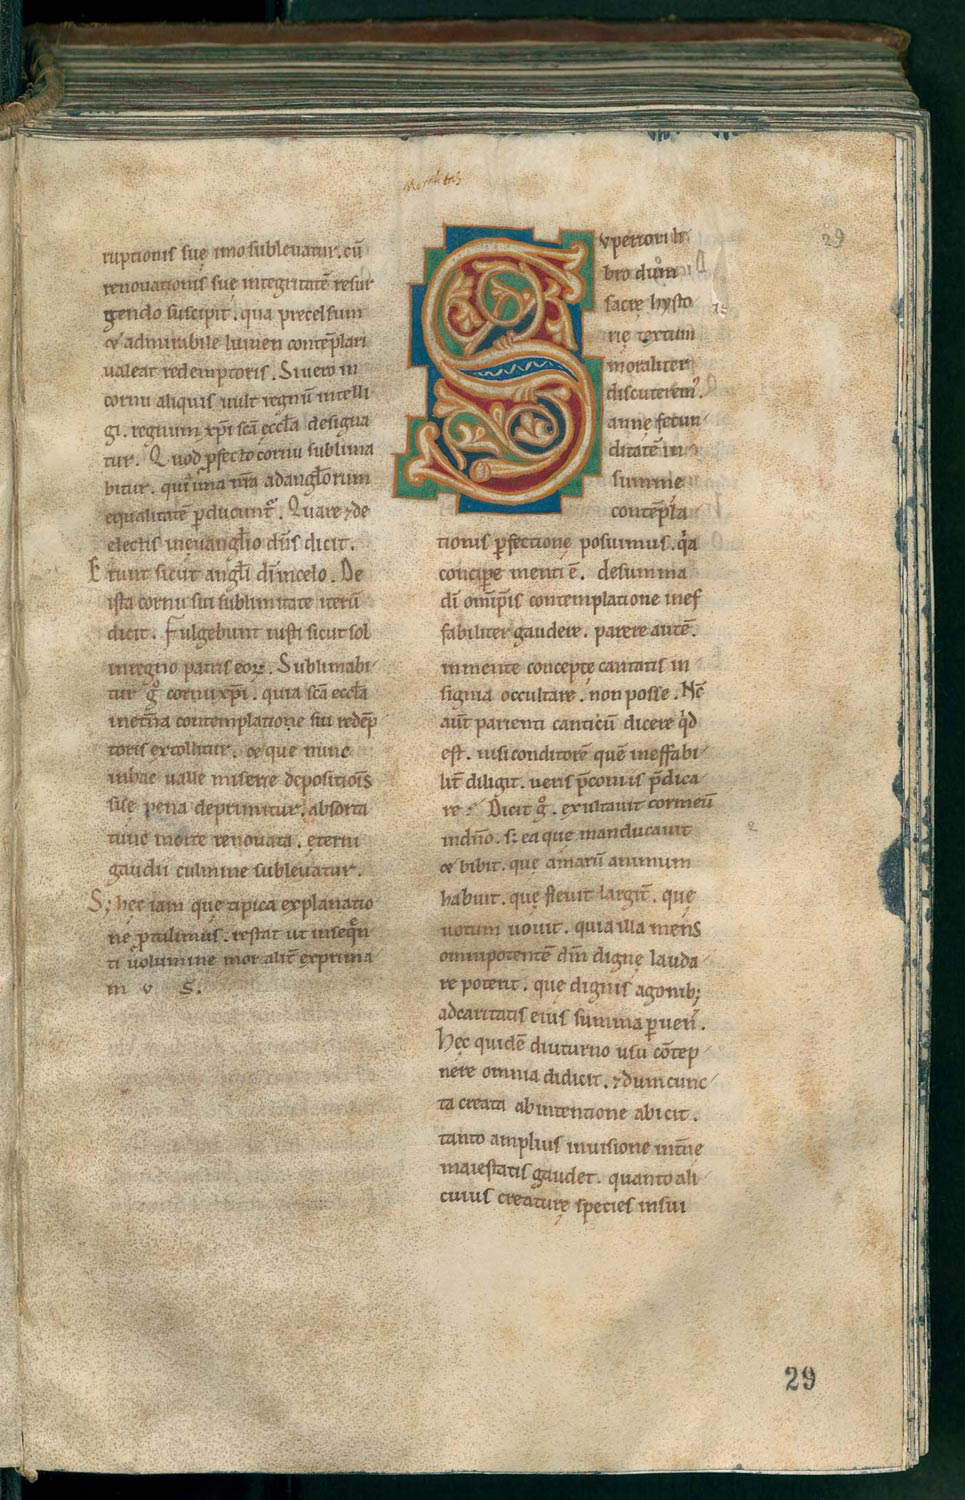 ruptionis suę imo subleuatur. cū
renouationis suę integritatē resur
gendo suscipit. qua precelsum
& admirabile lumen contēplari
ualeat redemptoris. Si uero in
cornu aliquis uult regnū intelli
gi. regnum xp̄i scā eccl̄a designa
tur. Quod p̄fecto cornu sublima
bitur. ad angl̄orum
equalitatē ꝑducunt᷑. Quare ⁊ de
electis in euangl̄io dn̄s dicit.
Erunt sicut angl̄i dī in celo. De
ista cornu sui sublimitate iterū
dicit. Fulgebunt iusti sicut sol
in regno patris eoꝝ. Sublimabi
tur gͦ cornu xp̄i. quia scā eccl̄a
in et̄na contemplatione sui redēp
toris extollitur. & que nunc
in hac ualle miserie depositiōis
sue pena deprimitur. absorta
tunc morte renouata. eterni
gaudii culmine subleuatur.
S; hec iam que tipica explanatio
ne ꝓtulimus. restat ut in seqn̄
ti uolumine moralit̄ exprima
m u s.
Superiori li
bro dum
sacrę hysto
rię textum
moraliter
discuterem᷒.
annę fecun
ditatē in
summe
contēpla
tionis ꝑfectione posuimus. qa
concipe menti ē. de summa
dī omīpīs contemplatione inef
fabiliter gaudere. parere autē.
in mente conceptę caritatis in
signia occultare. non posse. Nē
aut̄ parienti canticū dicere qd
est. nisi conditorē quē ineffabi
lit̄ diligit. ueris p̄coniis p̄dica
re. Dicit gͦ. exultauit cor meū
in dn̄o. s; ea que manducauit
& bibit. que amarū animum
habuit. que fleuit largit̄. que
uotum uouit. quia illa mens
omnipotentē dn̄m digne lauda
re poterit. que dignis agonib;
ad caritatis eius summa ꝑuen̄.
Hęc quidē diuturno usu cōtep
nere omnia didicit. ⁊ dum cunc
ta creata ab intentione abicit.
tanto amplius in uisione int̄ne
maiestatis gaudet. quanto ali
cuius creaturę species in sui
29
29